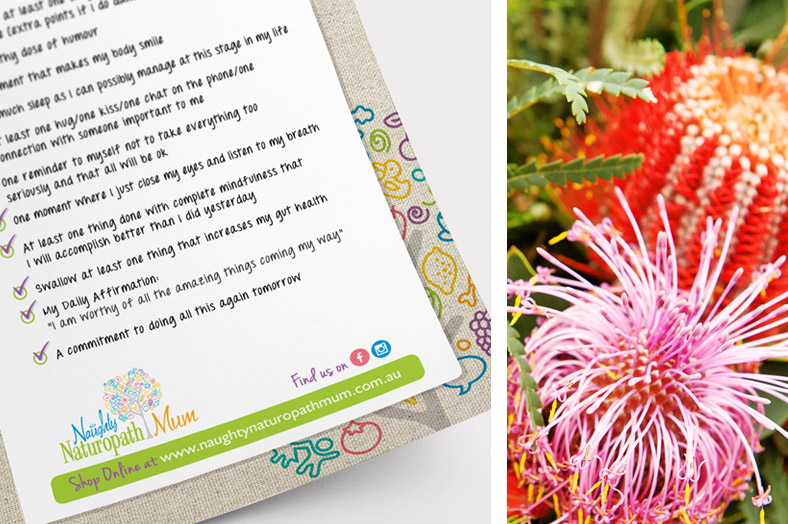 at least one
(extra points if I do
thy dose of humour
ment that makes my body smile
much sleep as I can possibly manage at this stage in my life
least one hug/one kiss/one chat on the phone/one
onnection with someone important to me
one reminder to myself not to take everything too
seriously and that all will be ok
One moment where I just close my eyes and listen to my breath
At least one thing done with complete mindfulness that
I will accomplish better than I did yesterday
Swallow at least one thing that increases my gut health
My Daily Affirmation:
"I am worthy of all the amazing things coming my way"
A commitment to doing all this again tomorrow
Naughty
Naturopath Mum
Find us on
Shop Online at www.naughtynaturopathmum.com.au